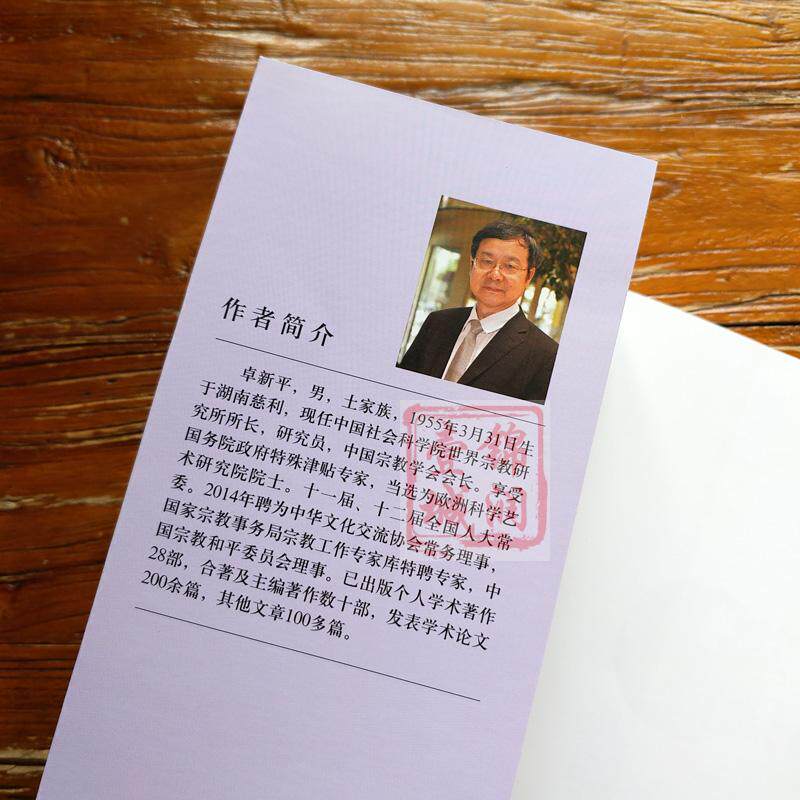 作者简介
卓新平，男，土家族，1955年3月31日生
于湖南慈利，现任中国社会科学院世界宗教研
究所所长，研究员，中国宗教学会会长。享受
国务院政府特殊津贴专家，当选为欧洲科学艺
术研究院院士。十一届、十二届全国人大常
委。2014年聘为中华文化交流协会常务理事，
国家宗教事务局宗教工作专家库特聘专家，中
国宗教和平委员会理事。已出版个人学术著作
28部，合著及主编著作数十部，发表学术论文
200余篇，其他文章100多篇。
锦润
壹城